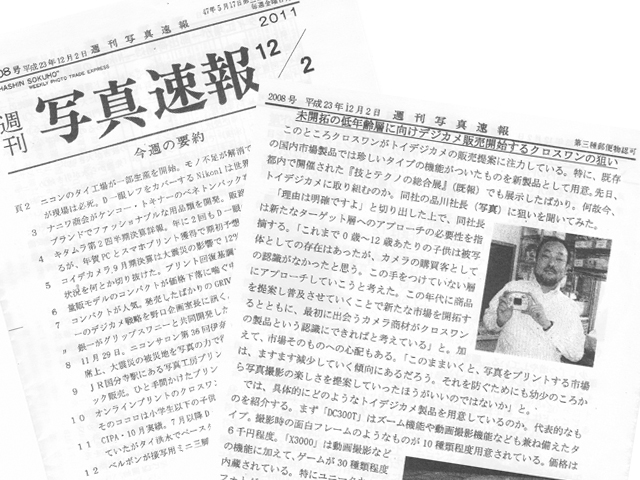 47年5月17日第三
毎週金曜
2011
08号 平成23年12月2日 週刊写真速報
HASHIN SOKUHO"
WEEKLY PHOTO TRADE EXPRESS
週刊
写真速報
12/2
今週の要約
頁2 ニコンのタイ工場が一部生産を開始。モノ不足が解消で
が現場は必死。D一眼レフをカバーするNikon1は世界
3 ナニワ商会がケンコー・トキナーのベネトンバックオ
ブランドでファッショナブルな用品類を開発。販
4 キタムラ第2四半期決算詳報。年に2回もD一眼
るが、年賀PCとスマホプリント獲得で期初予想
5 コイデカメラ9月期決算は大震災の影響で12
状況を何とか切り抜けた。プリント回復基調
6 量販モデルのコンパクトが価格下落に喘ぐ
7 コンパクトが人気。発売したばかりのGRIV
一のデジカメ戦略を野口企画室長に訊く。
〃 銀一がグリップスワニーと共同開発した
8 11月29日。ニコンサロン第36回伊奈
席上、大震災の被災地を写真の力で
9 JR国分寺駅にある写真工房プリン
ック販売。ひと手間かけたプリン
10 オンラインプリントのクロスワ
そのココロは小学生以下の子供
11 CIPA・10月実績。7月以降
ていたがタイ洪水でペース
12 ベルボンが接写用ミニ三
2008号 平成23年12月2日 週刊写真速報 第三種郵便物認可
未開拓の低年齢層に向けデジカメ販売開始するクロスワンの狙い
このところクロスワンがトイデジカメの販売提案に注力している。特に、既存
の国内市場製品では珍しいタイプの機能がついたものを新製品として用意。先日、
都内で開催された『技とテクノの総合展』(既報)でも展示したばかり。何故今、
トイデジカメに取り組むのか。同社の品川社長(写真)に狙いを聞いてみた。
「理由は明確ですよ」と切り出した上で、同社長
は新たなターゲット層へのアプローチの必要性を指
摘する。「これまで0歳~12歳あたりの子供は被写
体としての存在はあったが、カメラの購買客として
の認識がなかったと思う。この手をつけていない層
にアプローチしていこうと考えた。この年代に商品
を提案し普及させていくことで新たな市場を開拓す
るとともに、最初に出会うカメラ商材がクロスワン
の製品という認識にできればと考えている」と。加
えて、市場そのものへの心配もある。「このままいくと、写真をプリントする市場
は、ますます減少していく傾向にあるだろう。それを防ぐためにも幼少のころか
ら写真撮影の楽しさを提案していったほうがいいのではないか」と。
では、具体的にどのようなトイデジカメ製品を用意しているのか。代表的なも
のを紹介する。まず「DC300T」はズーム機能や動画撮影機能なども兼ね備えたタ
イプ。撮影時の面白フレームのようなものが10種類程度用意されている。価格は
6千円程度。「X3000」は動画撮影など
の機能に加えて、ゲームが30種類程度
内蔵されている。特にユニーク